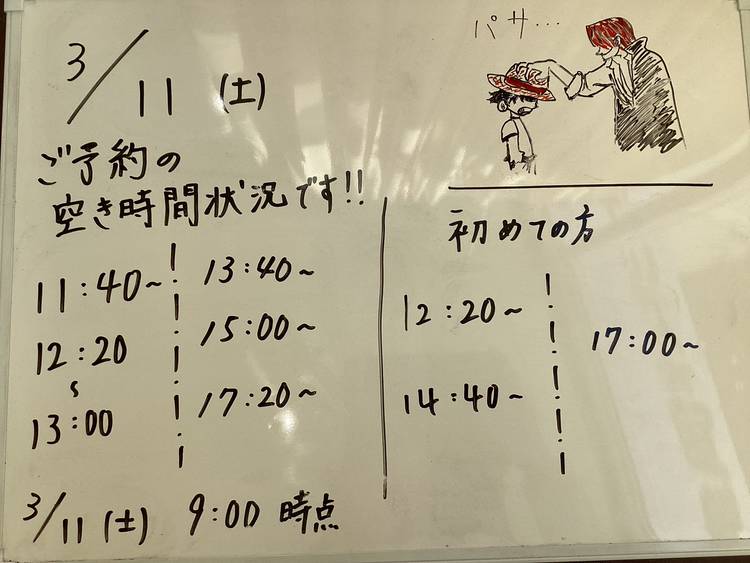 3/11 (土)
パサ…
ご予約の
空き時間状況です!!
11:40~
12:20
~
13:00
13:40~
15:00~
17:20~
初めての方
12:20~
14:40~
17:00~
3/11(土) 9:00 時点